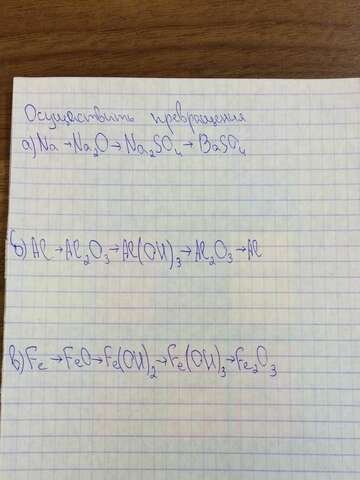 Осуществить превращения
а) Na → Na₂O → Na₂SO₄ → BaSO₄
б) Al → Al₂O₃ → Al(OH)₃ → Al₂O₃ → Al
в) Fe → FeO → Fe(OH)₂ → Fe(OH)₃ → Fe₂O₃